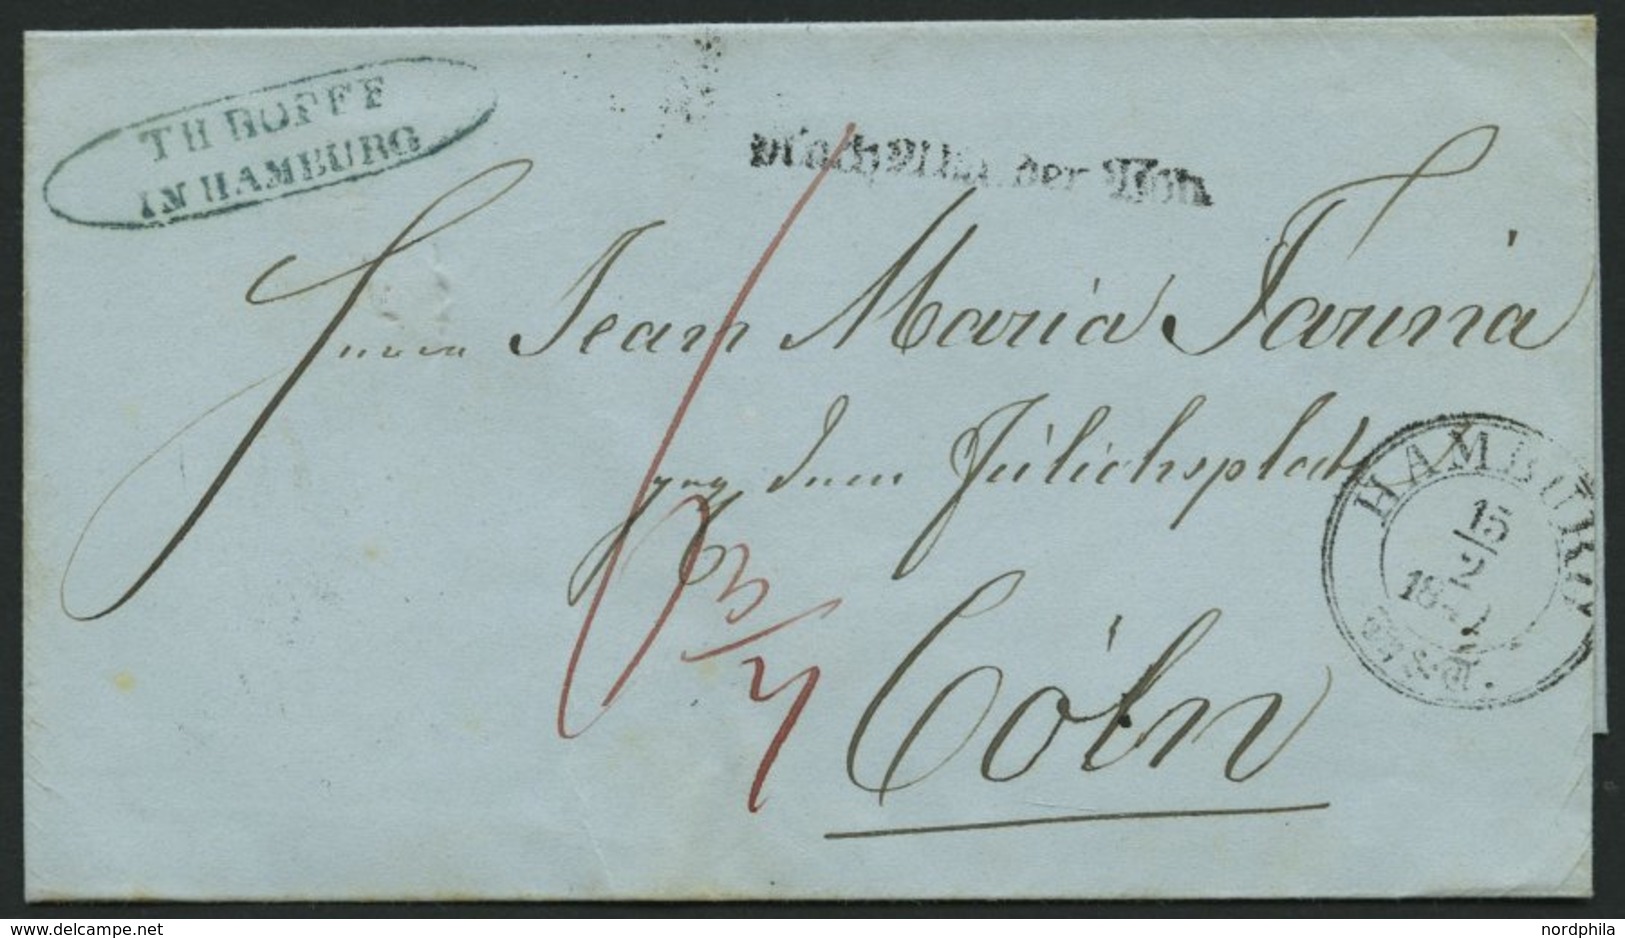 TH HOPFF
IN HAMBURG
Nach Abg. der Post.
Herrn Jean Maria Farina
geg. dem Jülichsplatz
Cöln
HAMBURG
15
2
3/4
nordphila